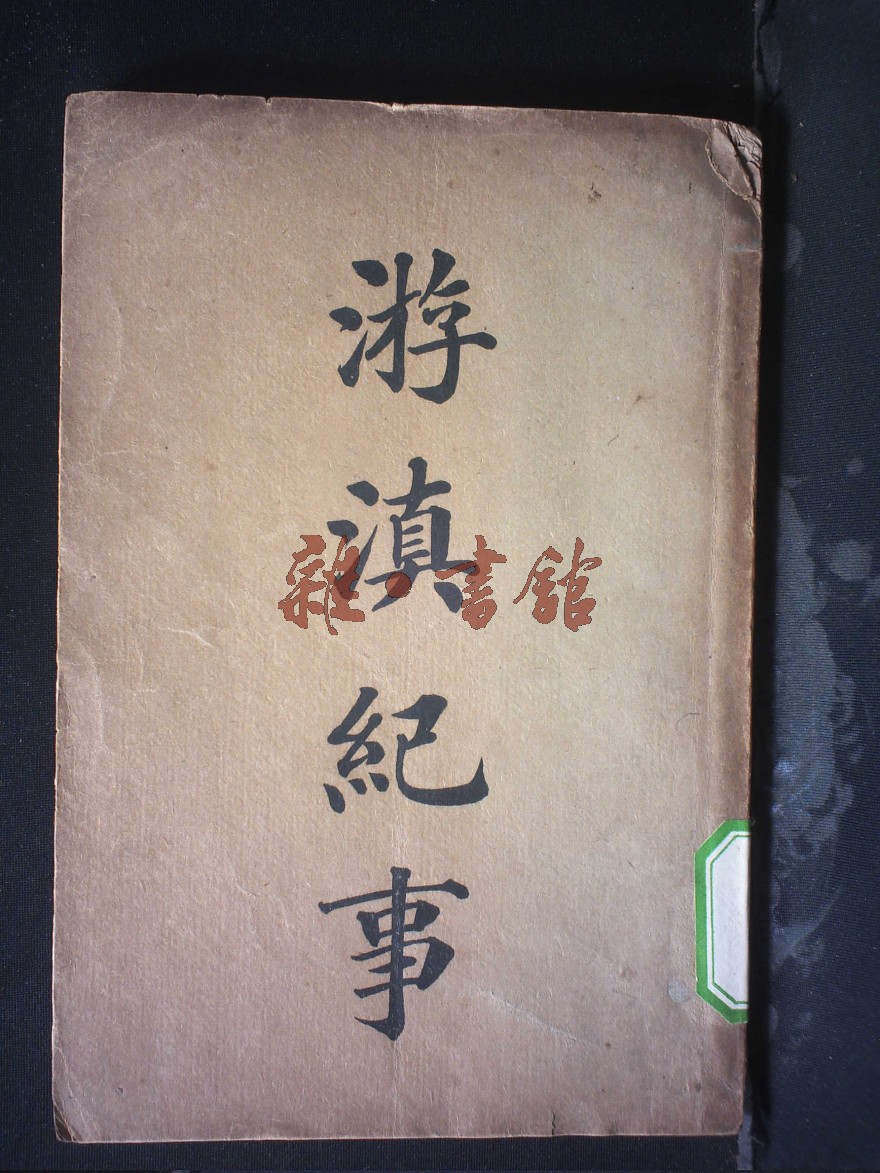 游滇紀事
雜·書館